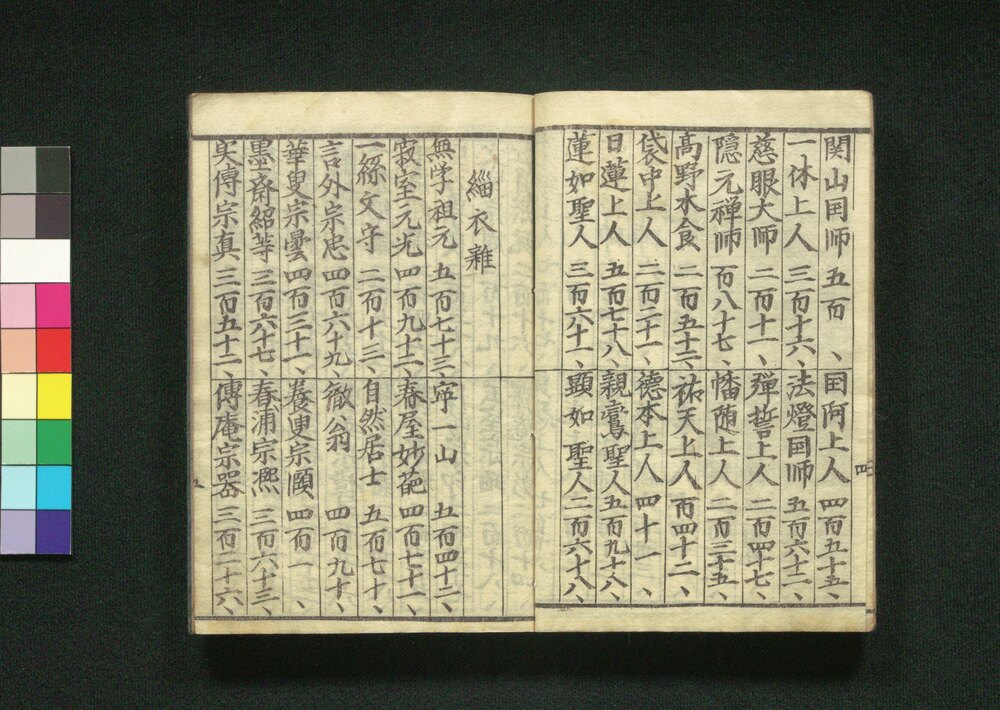 関山囯師 五百、 囯阿上人 四百五十五、
一休上人 三百十六、 法燈囯師 五百六十二、
慈眼大師 二百十一、 弾誓上人 二百四十七、
隠元禅師 百八十七、 幡随上人 二百三十五、
高野木食 二百五十三、 祐天上人 百四十二、
袋中上人 二百二十一、 徳本上人 四十一、
日蓮上人 五百七十八、 親鸞聖人 五百九十八、
蓮如聖人 三百六十一、 顕如聖人 二百六十八、
四
緇衣雑
無学祖元 五百七十三、 寧一山 五百四十二、
寂室元光 四百九十二、 春屋妙葩 四百七十一、
一絲文守 二百十三、 自然居士 五百七十、
言外宗忠 四百六十九、 徹翁 四百九十、
華叟宗曇 四百三十一、 養叟宗頤 四百一、
墨斎紹等 三百六十七、 春浦宗熈 三百六十三、
実傳宗真 三百五十二、 傳庵宗器 三百二十六、